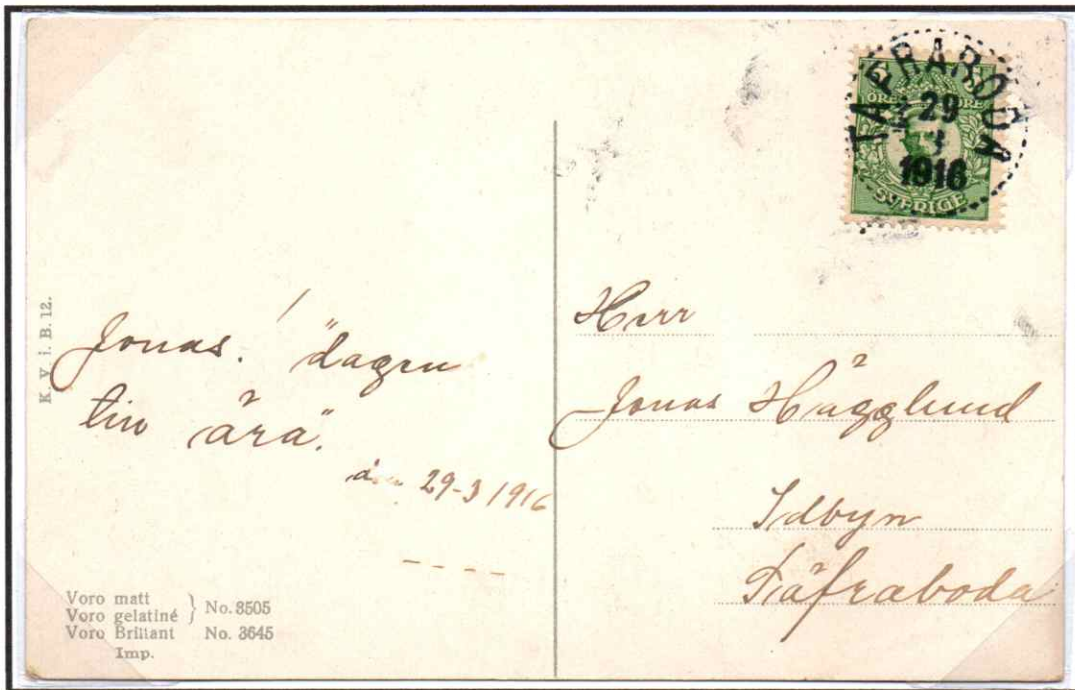 TÄFRABODA
29
3
1916
ÖRE ÖRE
SVERIGE
K. V. i. B. 12.
Jonas! dagen
till ära.
den 29-3 1916
Herr
Jonas Hägglund
Idbyn
Täfraboda
Voro matt
Voro gelatiné } No. 3505
Voro Brillant No. 3645
Imp.